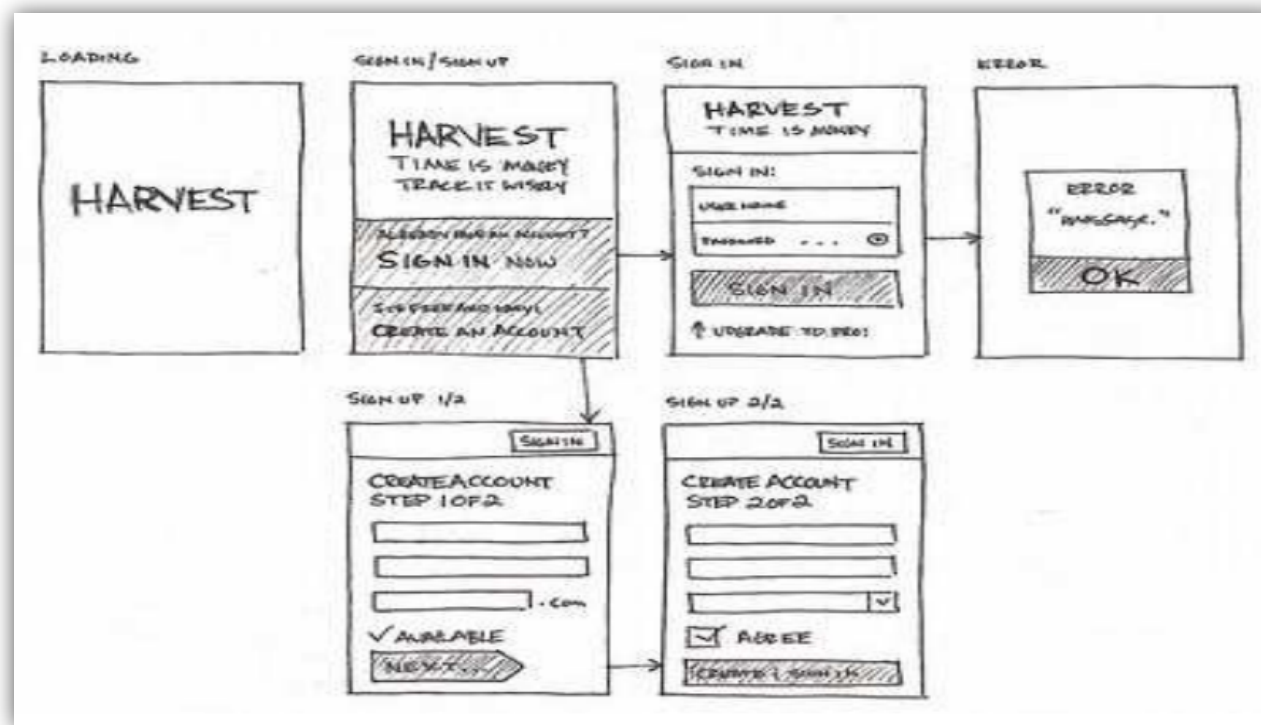 LOADING
HARVEST
SIGN IN/SIGN UP
HARVEST
TIME IS MONEY
TRACK IT WISELY
ALREADY HAVE AN ACCOUNT?
SIGN IN NOW
CREATE AN ACCOUNT
SIGN IN
HARVEST
TIME IS MONEY
SIGN IN:
USER NAME
PASSWORD ...
SIGN IN
↑ UPGRADE TO PRO!
ERROR
ERROR
"MESSAGE."
OK
SIGN UP 1/2
SIGN IN
CREATE ACCOUNT
STEP 1 OF 2
.com
✓ AVAILABLE
NEXT..
SIGN UP 2/2
SIGN IN
CREATE ACCOUNT
STEP 2 OF 2
AGREE
CREATE & SIGN IN